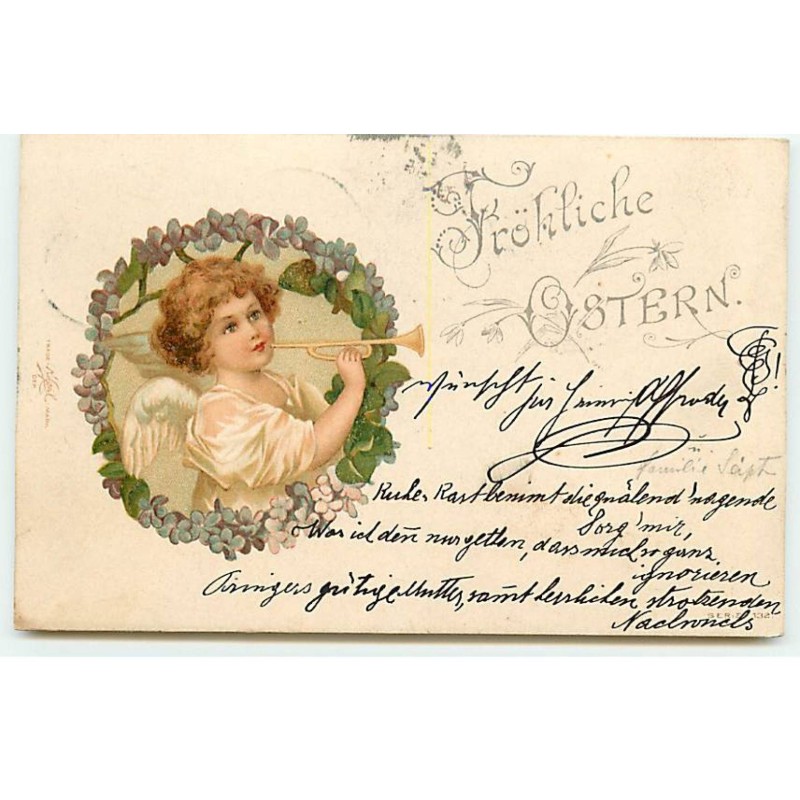 Fröhliche
OSTERN.
wünscht
familie
Ruhe, Rast benimmt die quälend' nagende
Sorg' mir,
Was ich denn nur gethan, dass mich so ganz
ignorieren
gütige Mutter, samt herrlichen strotzenden
Nachwuchs
TRADE
MARK
SERIE 132